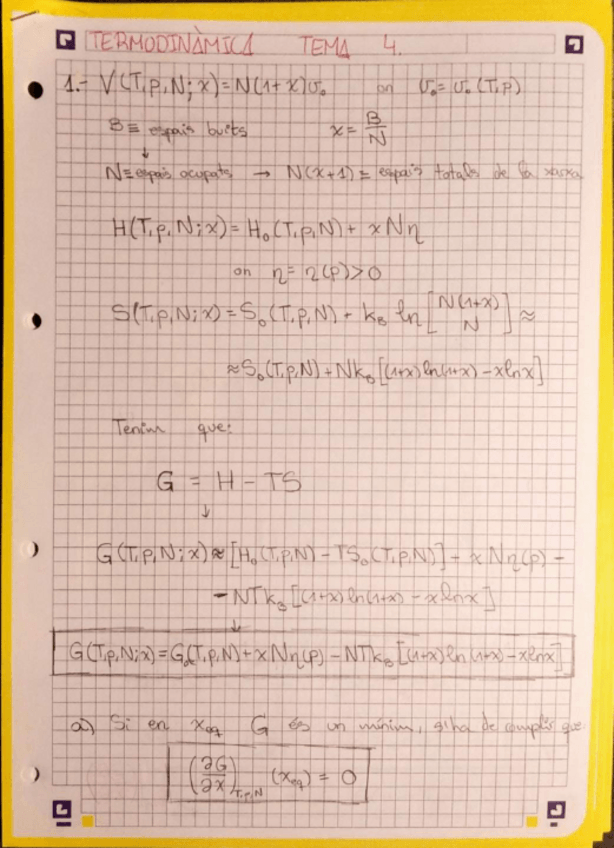 TERMODINÀMICA TEMA 4.
1.- V(T,p,N;x)=N(1+x)v₀ on v₀=v₀(T,p)
B≡ espais buits x=B/N
↓
N≡espais ocupats → N(x+1)≡ espais totals de la xarxa
H(T,p,N;x)=H₀(T,p,N)+ xNη
on η=η(p)>0
S(T,p,N;x)=S₀(T,p,N)+ k_B ln [N(1+x) N] ≈
≈S₀(T,p,N)+Nk_B[(1+x)ln(1+x)-xlnx]
Tenim que:
G = H - TS
↓
G(T,p,N;x)≈[H₀(T,p,N)-TS₀(T,p,N)]-xNη(p)-
-NTk_B[(1+x)ln(1+x)-xlnx]
↓
G(T,p,N;x)=G₀(T,p,N)+xNη(p)-NTk_B[(1+x)ln(1+x)-xlnx]
a) Si en x_eq G és un mínim, s'ha de complir que:
(∂G/∂x)_T,p,N (x_eq) = 0